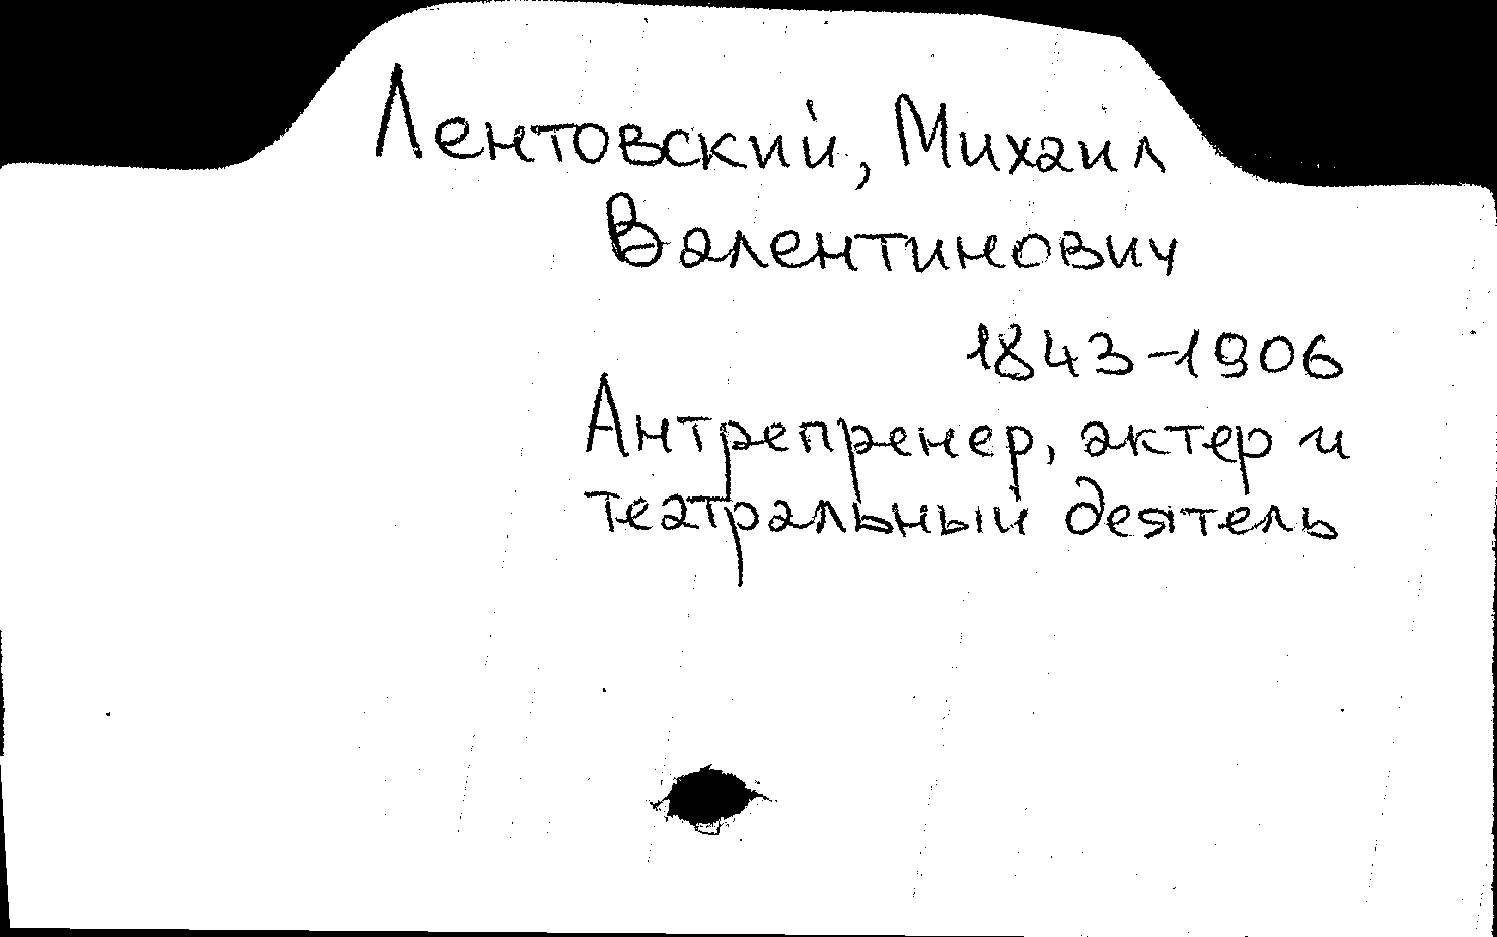 Лентовский, Михаил
Валентинович
1843-1906
Антрепренер, актер и
театральный деятель